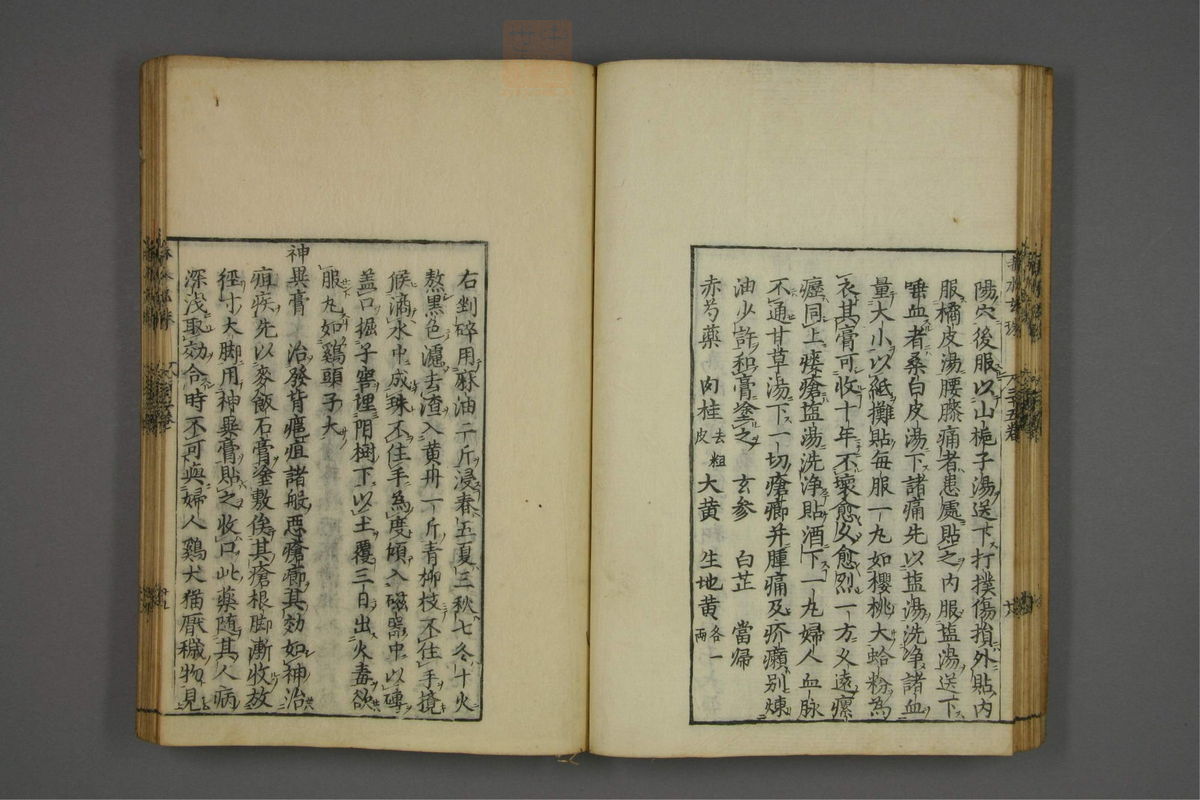 陽穴後服以山梔子湯送下打撲傷損外貼内
服橘皮湯腰膝痛者患處貼之内服塩湯送下
唾血者桑白皮湯下諸痛先以塩湯洗浄諸血
量大小以紙攤貼毎服一丸如櫻桃大蛤粉為
衣其膏可收十年不壞愈久愈烈一方乂遠瘰
癧同上瘻瘡塩湯洗浄貼酒下一丸婦人血脉
不通甘草湯下一切瘡癤并腫痛及疥癩别煉
油少許和膏塗之 玄参 白芷 當帰
赤芍藥 肉桂去粗皮 大黄 生地黄各一兩
右剉碎用麻油二斤浸春五夏三秋七冬十火
熬黒色濾去渣入黄丹一斤青柳枝不住手攪
候滴水中成珠不住手為度傾入磁噐中以磚
盖口掘子窖埋阴樹下以土覆三日出火毒欲
服丸如鷄頭子大
神異膏 治發背癰疽諸般惡瘡癤其効如神治
疽疾先以麥飯石膏塗敷俟其瘡根脚漸收放
徑寸大脚用神異膏貼之收口此藥随其人病
深浅取効合時不可與婦人鷄犬猫厭穢物見